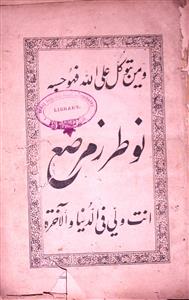 ومن يتوكل على الله فهو حسبه
LIBRARY.
نو طرز مرصع
انت وليّ فى الدنيا والآخرة